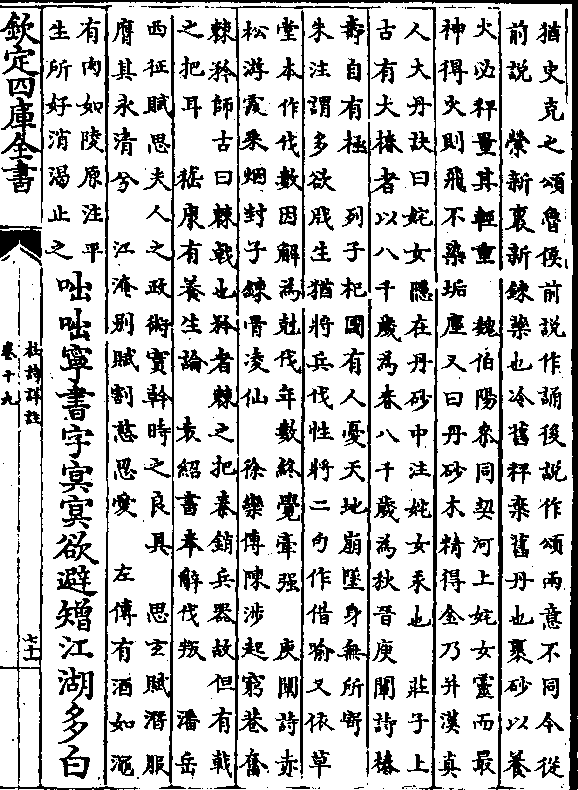 猶史克之頌魯侯前說作誦後說作頌兩意不同今從
前說　縈新裹新鍊藥也冷舊秤棄舊丹也裹砂以養
火必秤量其輕重　魏伯陽參同契河上姹女靈而最
神得火則飛不染垢塵又曰丹砂木精得金乃并漢真
人大丹訣曰姹女隱在丹砂中注姹女汞也　莊子上
古有大椿者以八千歲為春八千歲為秋晉庾闡詩椿
壽自有極　列子杞國有人憂天地崩墜身無所寄
朱注謂多欲戕生猶將兵伐性將二句作借喻又依草
堂本作伐數因解為剋伐年數終覺牽强　庾闡詩赤
松游霞乘烟封子鍊骨凌仙　徐樂傳陳涉起窮巷奮
棘矜師古曰棘戟也矜者棘之把秦銷兵器故但有戟
之把耳　嵇康有養生論　袁紹書奉辭伐叛　潘岳
西征賦思夫人之政術實幹時之良具　思玄賦潛服
膺其永清兮　江淹别賦割慈忍愛　左傳有酒如澠
有肉如陵原注平
生所好消渴止之
咄咄寧書字冥冥欲避矰江湖多白
欽定四庫全書
杜詩詳註
卷十九
七十一